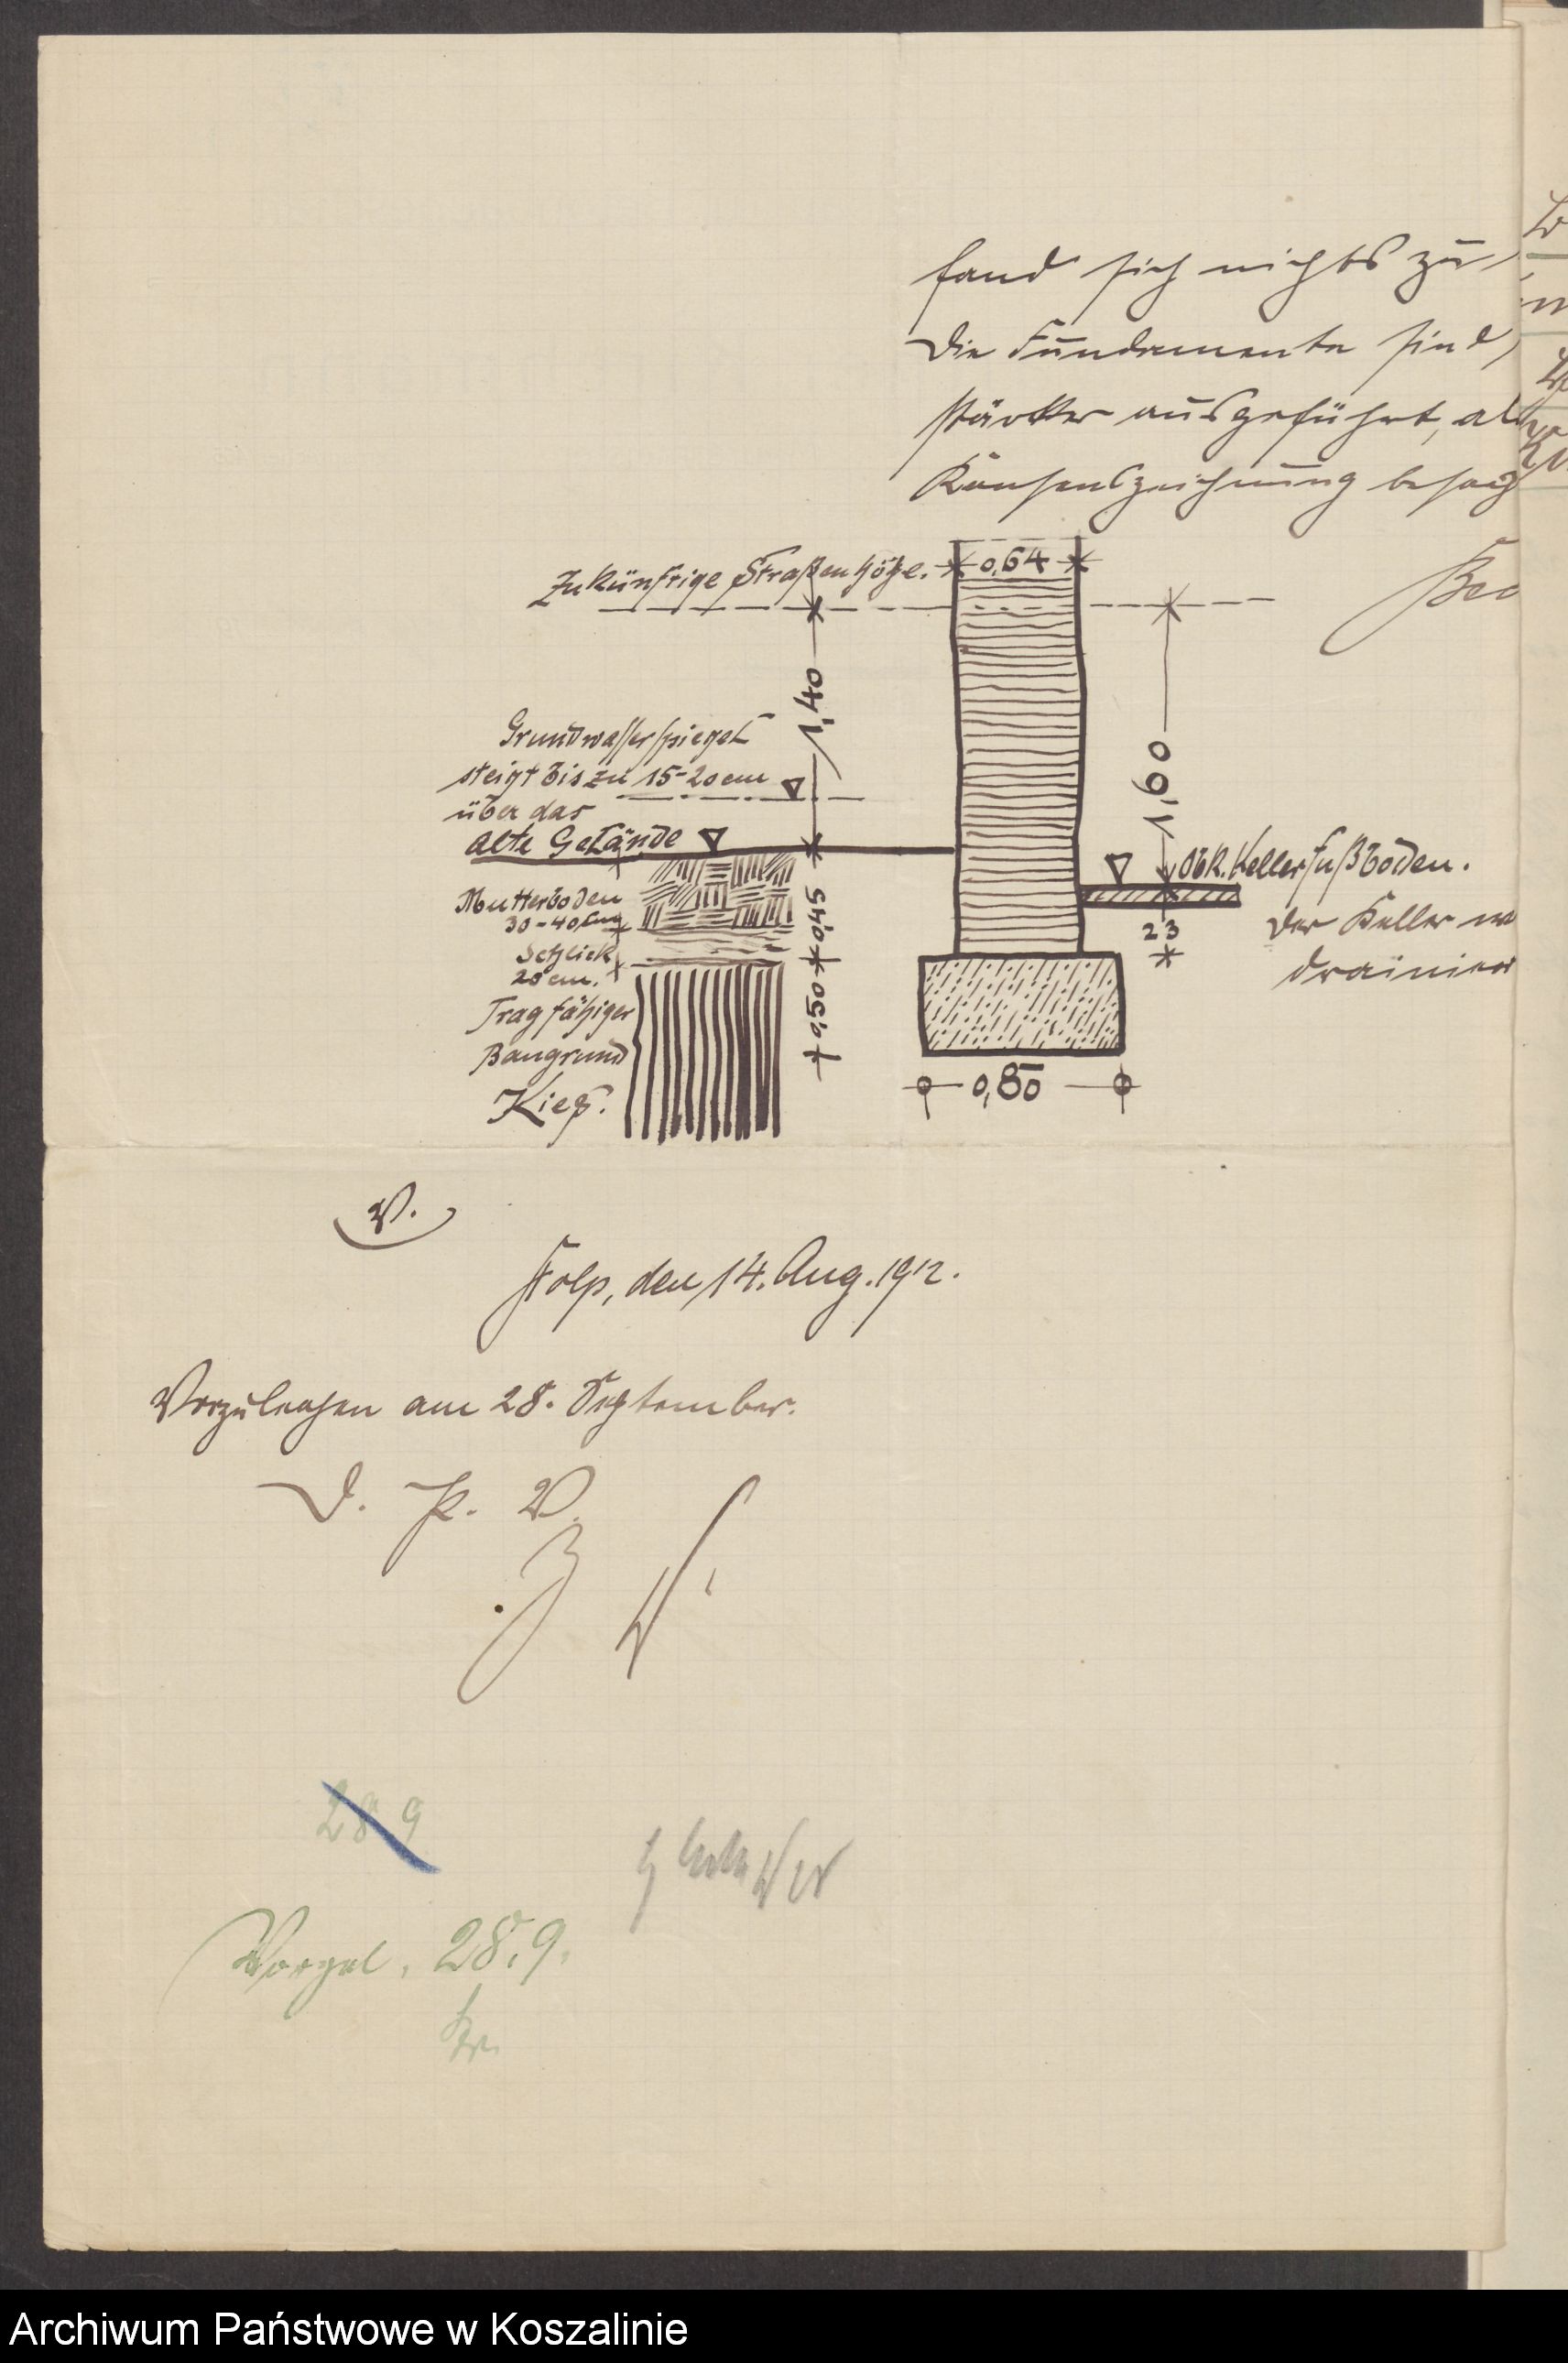 fand sich nichts zu
Die Fundamente sind
stärker ausgeführt, als
Konsenszeichnung besag
Zukünftige Straßenhöhe.
0,64
1,40
1,60
Grundwasserspiegel
steigt bis zu 15-20cm
über das
alte Gelände
Obk. Kellerfußboden.
Mutterboden
30-40cm
0,45
23
Der Keller
Schlick
20cm.
drainier
Tragfähiger
0,50
Baugrund
0,80
Kies.
V.
Stolp, den 14. Aug. 1912.
Vorzulegen am 28. September.
D. P. V.
28 9
Vorgel. 28.9.
Archiwum Państwowe w Koszalinie